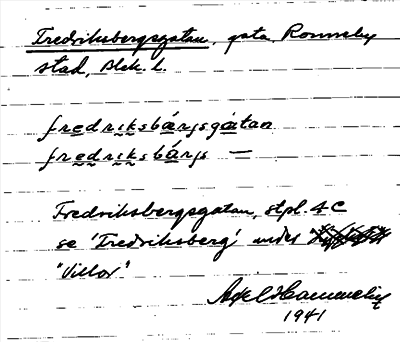 Fredriksbergsgatan, gata, Ronneby
stad, Blek. l.
fredriksbärjsgatan
fredriksbärjs —
Fredriksbergsgatan, stpl. 4 C
se 'Fredriksberg' under
"Villor"
Axel
1941